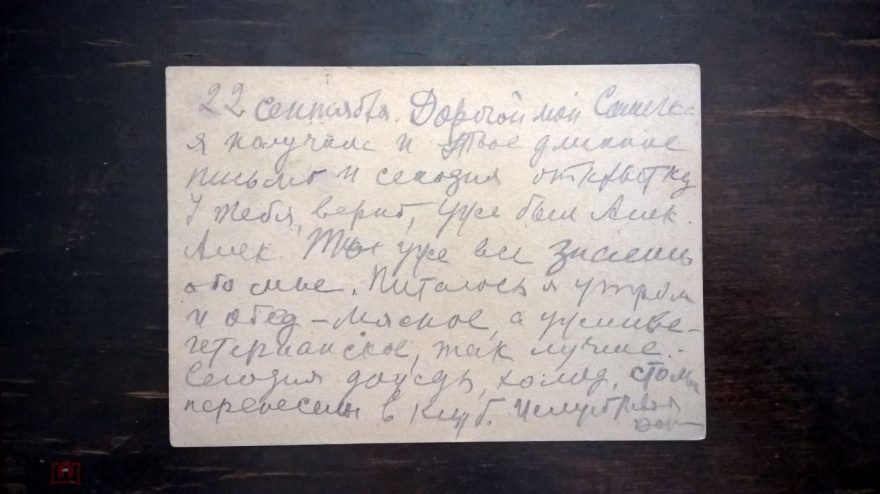 22 сентября. Дорогой мой
я получила и твое длинное
письмо и сегодня открытку
У тебя, верно, уже был Алек.
Алек Ты уже все знаешь
обо мне. Питаюсь я утром
и обед – мясное, а ужин ве-
гетерианское, так лучше.-
Сегодня дождь, холод, столы
перенесли в клуб.